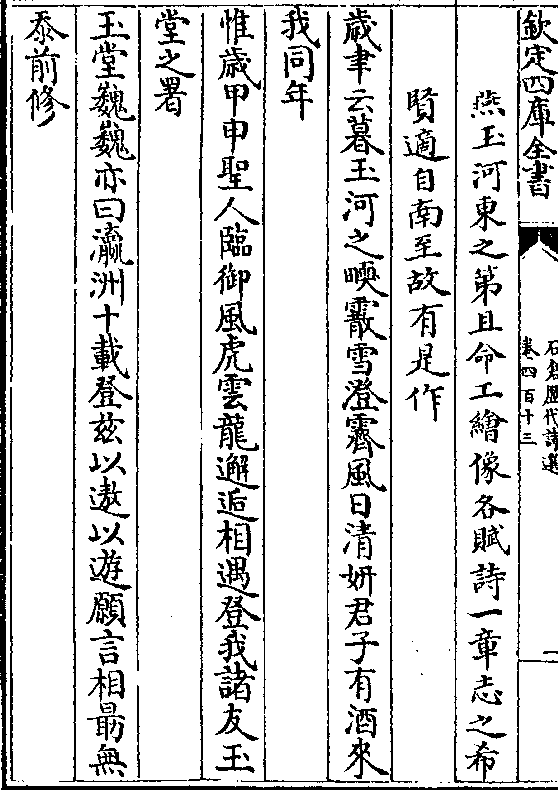 欽定四庫全書
石倉歷代詩選
卷四百十三
一
燕玉河東之第且命工繪像各賦詩一章志之希
賢適自南至故有是作
歲聿云暮玉河之㬉霰雪澄霽風日清妍君子有酒來
我同年
惟歲甲申聖人臨御風虎雲龍邂逅相遇登我諸友玉
堂之署
玉堂巍巍亦曰瀛洲十載登兹以遨以游願言相勗無
忝前修